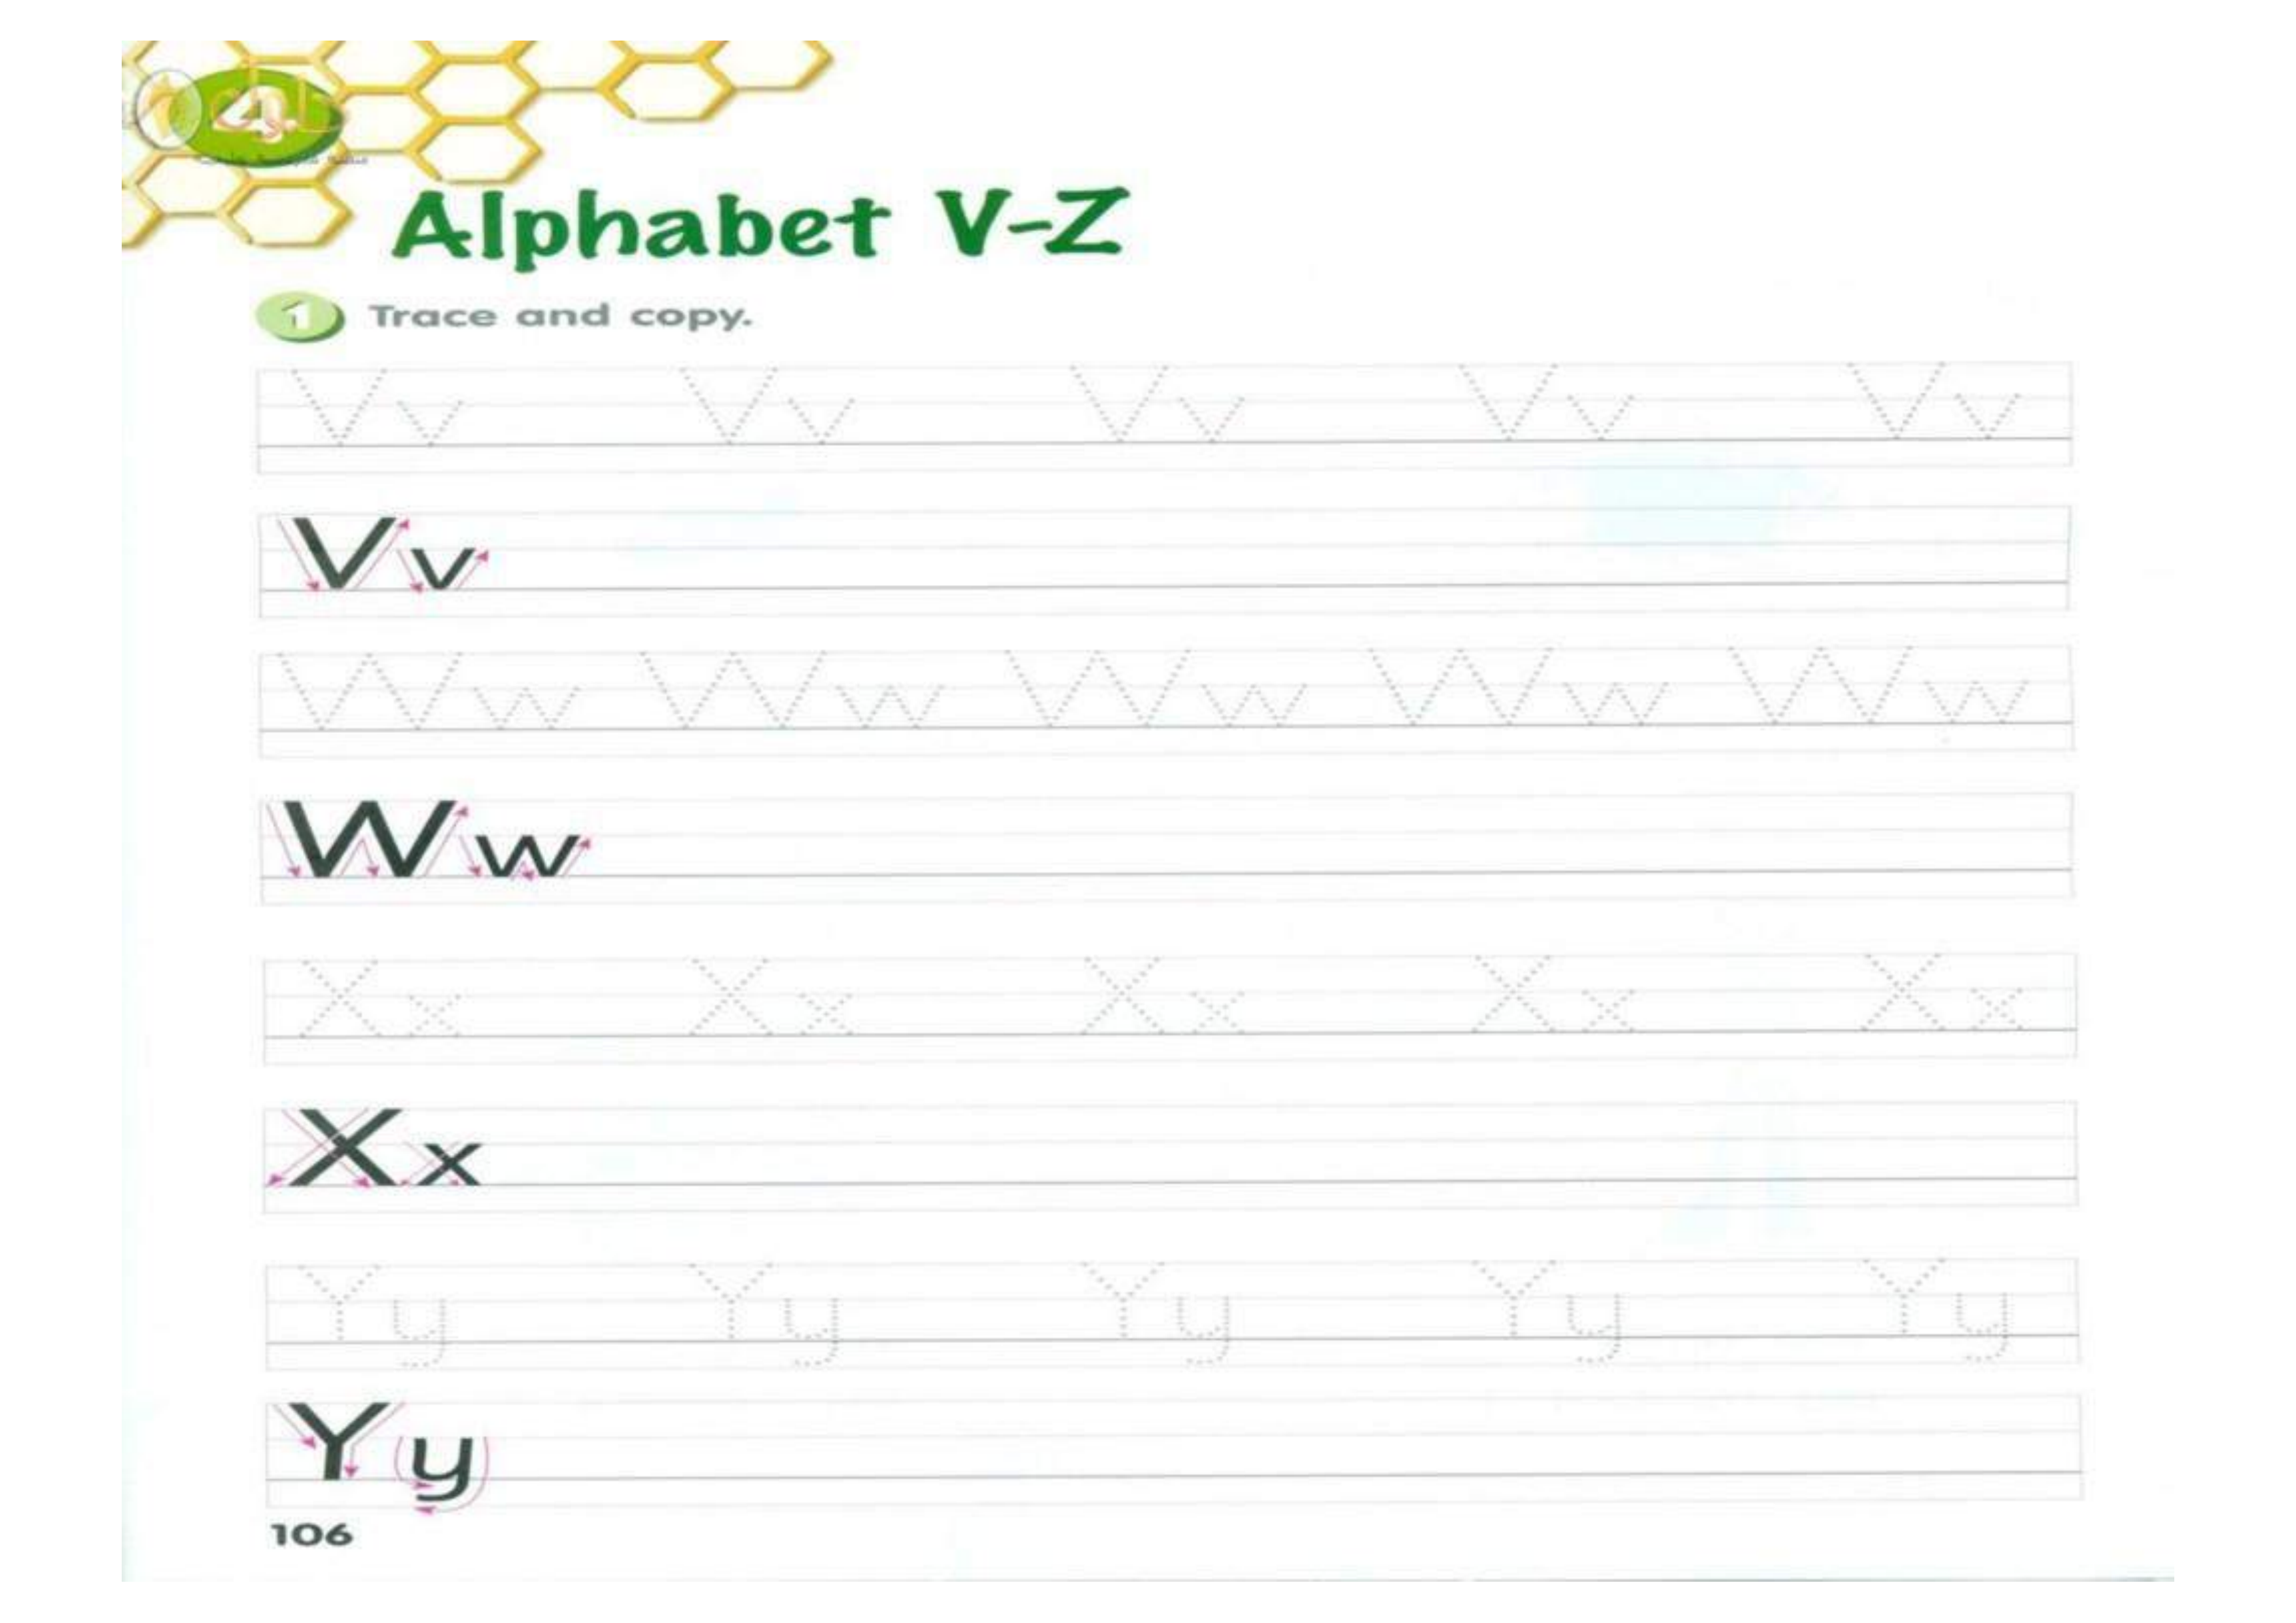 4
Alphabet V-Z
1 Trace and copy.
Vv Vv Vv Vv Vv
Vv
Ww Ww Ww Ww Ww
Ww
Xx Xx Xx Xx Xx
Xx
Yy Yy Yy Yy Yy
Yy
106